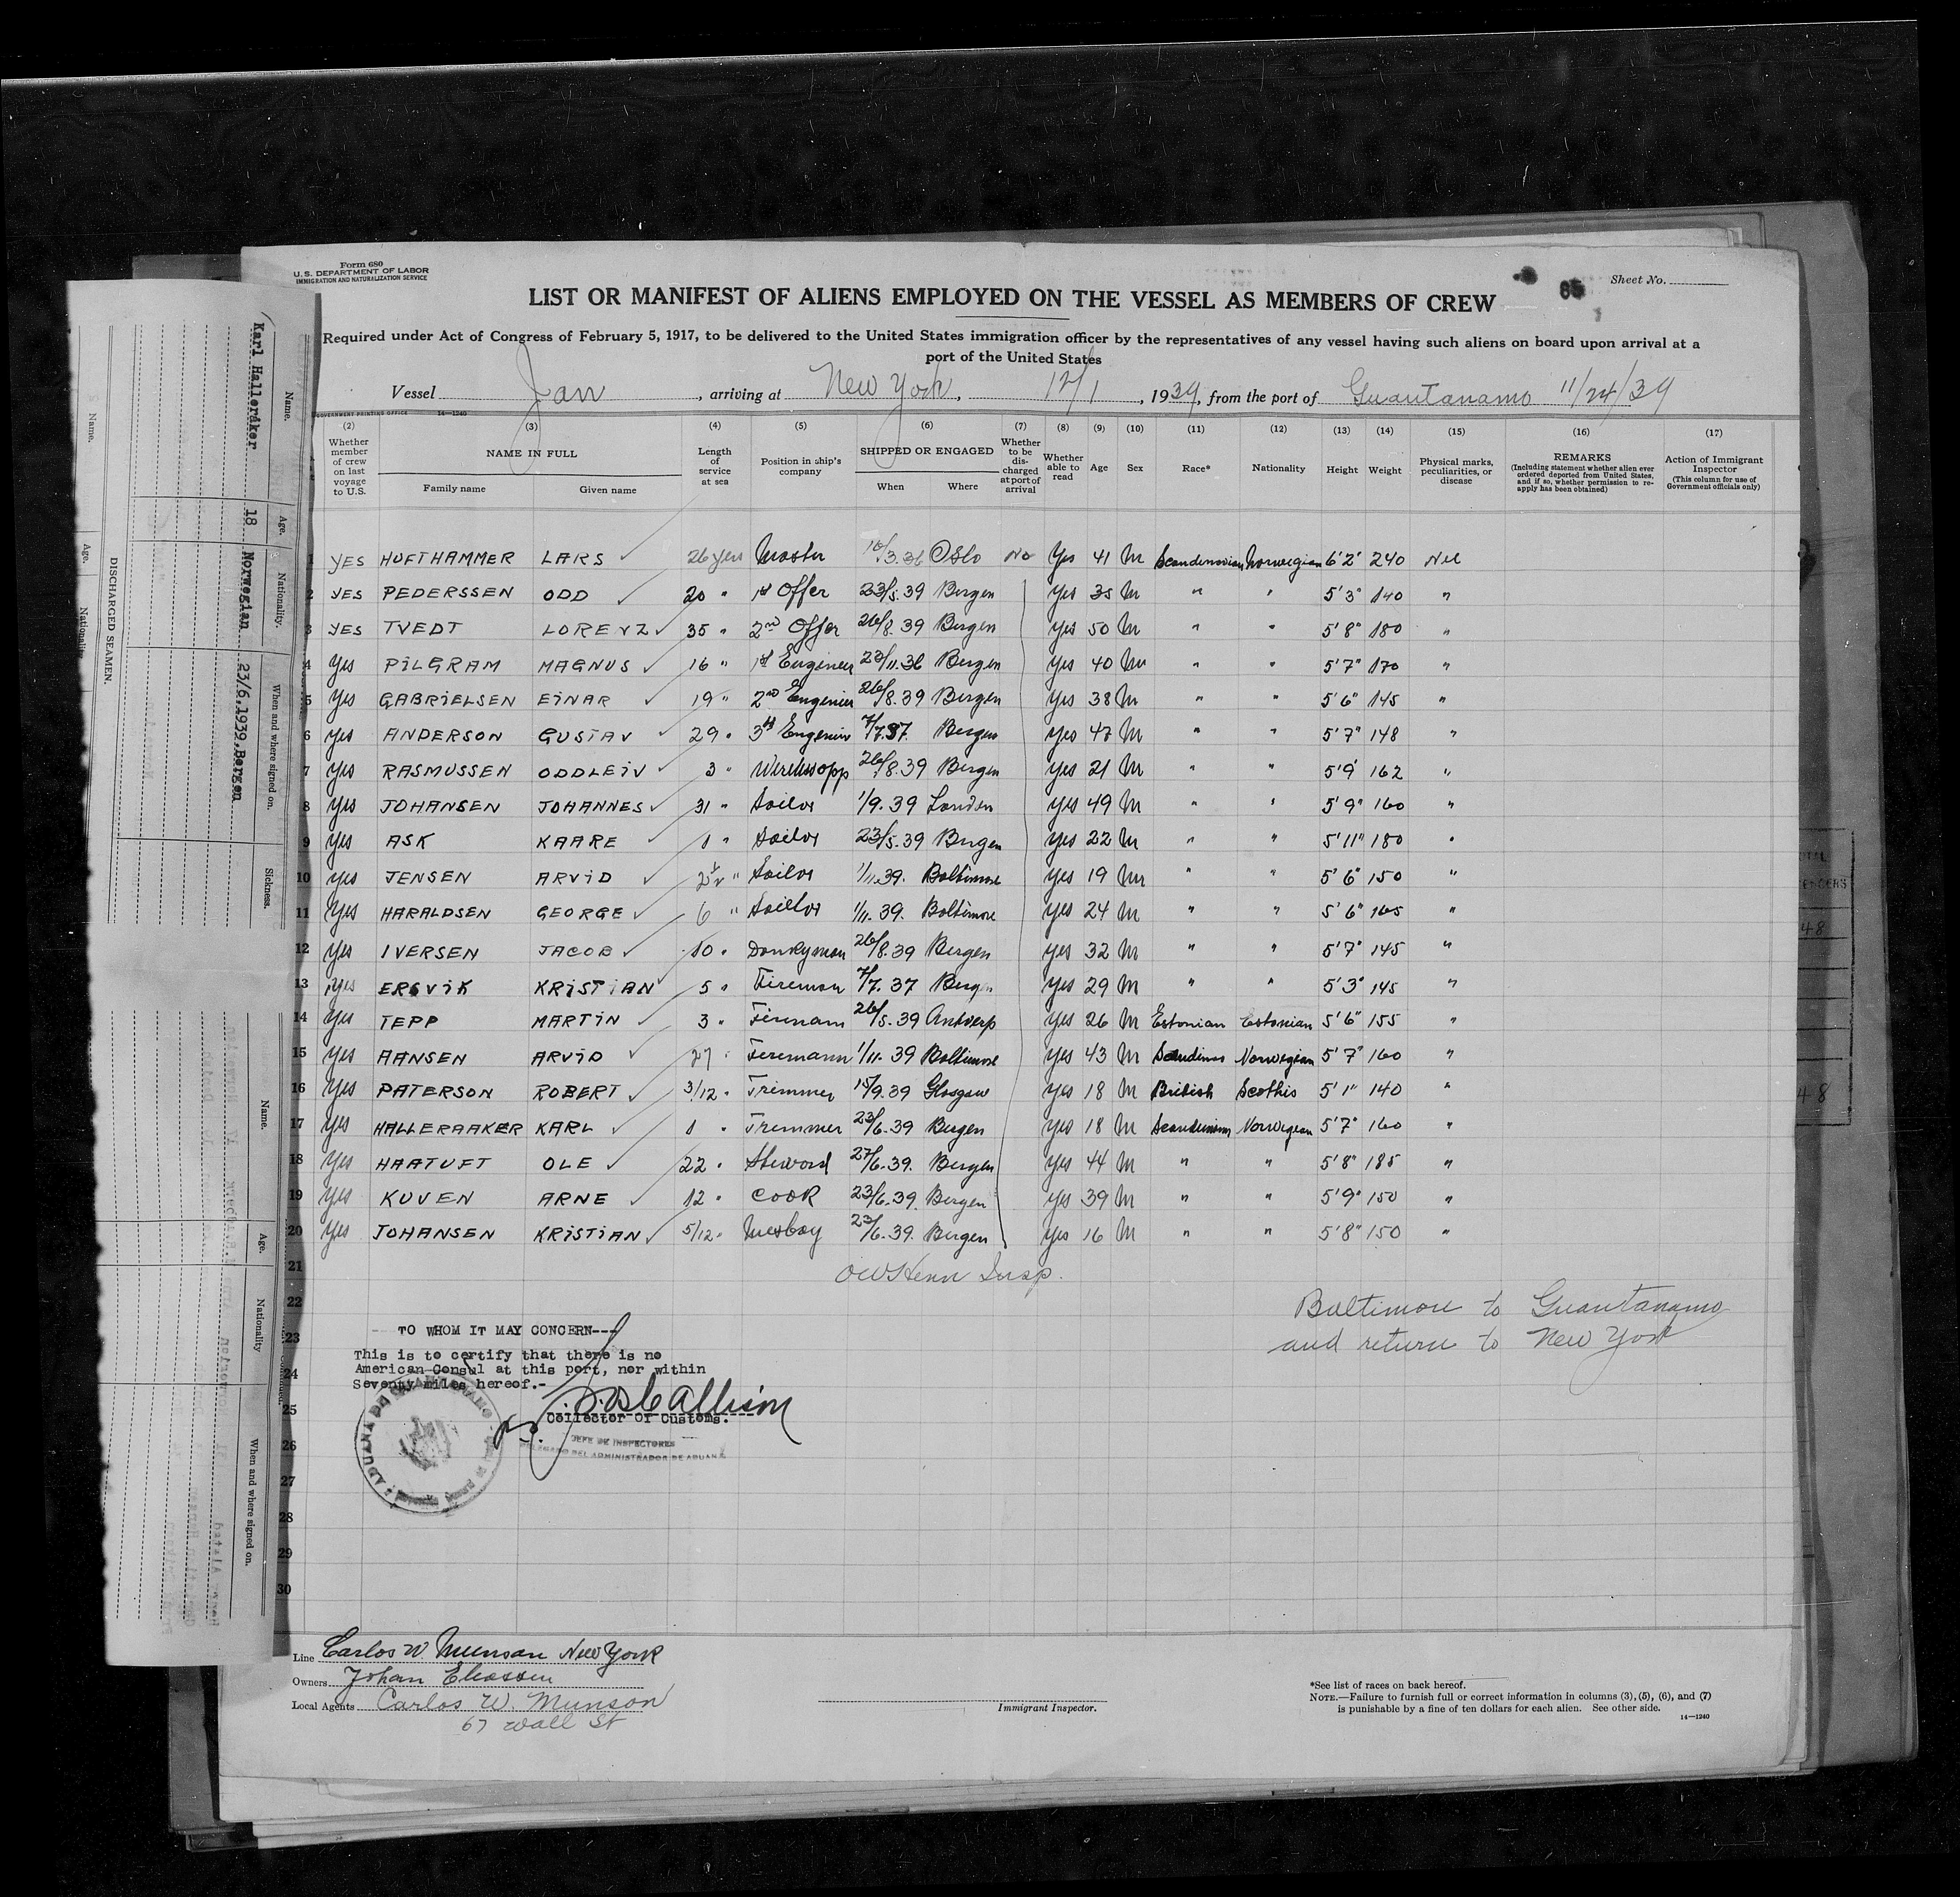 Form 680
U.S. DEPARTMENT OF LABOR
IMMIGRATION AND NATURALIZATION SERVICE
Sheet No.
85
LIST OR MANIFEST OF ALIENS EMPLOYED ON THE VESSEL AS MEMBERS OF CREW
Required under Act of Congress of February 5, 1917, to be delivered to the United States immigration officer by the representatives of any vessel having such aliens on board upon arrival at a
port of the United States
Vessel Jan, arriving at New York, 12/1, 1939, from the port of Guantanamo 11/24/39
GOVERNMENT PRINTING OFFICE 14—1240
(2) (3) (4) (5) (6) (7) (8) (9) (10) (11) (12) (13) (14) (15) (16) (17)
Whether member of crew on last voyage to U.S.
NAME IN FULL
Family name Given name
Length of service at sea
Position in ship's company
SHIPPED OR ENGAGED
When Where
Whether to be discharged at port of arrival
Whether able to read
Age
Sex
Race*
Nationality
Height
Weight
Physical marks, peculiarities, or disease
REMARKS
(Including statement whether alien ever ordered deported from United States, and if so, whether permission to re-apply has been obtained)
Action of Immigrant Inspector
(This column for use of Government officials only)
1 YES HUFTHAMMER LARS 26 yers Master 10/3.36 Oslo No Yes 41 M Scandinavian Norwegian 6'2' 240 Nil
2 YES PEDERSSEN ODD 20 " 1st Offer 23/5.39 Bergen Yes 35 M " " 5'3" 140 "
3 YES TVEDT LORENZ 35 " 2nd Offer 26/8.39 Bergen Yes 50 M " " 5'8" 180 "
4 Yes PILGRAM MAGNUS 16 " 1st Engineer 23/11.36 Bergen Yes 40 M " " 5'7" 170 "
5 Yes GABRIELSEN EINAR 19 " 2nd Engenier 26/8.39 Bergen Yes 38 M " " 5'6" 145 "
6 Yes ANDERSON GUSTAV 29 " 3d Engenier 7/7.37. Bergen Yes 47 M " " 5'7" 148 "
7 Yes RASMUSSEN ODDLEIV 3 " Wirelessopp 26/8.39 Bergen Yes 21 M " " 5'9' 162 "
8 Yes JOHANSEN JOHANNES 31 " Sailor 1/9.39 London Yes 49 M " " 5'9" 160 "
9 Yes ASK KAARE 1 " Sailor 23/5.39 Bergen Yes 22 M " " 5'11" 180 "
10 Yes JENSEN ARVID 2½ " Sailor 1/11.39. Baltimore Yes 19 M " " 5'6" 150 "
11 Yes HARALDSEN GEORGE 6 " Sailor 1/11.39. Baltimore Yes 24 M " " 5'6" 165 "
12 Yes IVERSEN JACOB 10 " Donkyman 26/8.39 Bergen Yes 32 M " " 5'7" 145 "
13 Yes ERSVIK KRISTIAN 5 " Fireman 7/7.37 Bergen Yes 29 M " " 5'3" 145 "
14 Yes TEPP MARTIN 3 " Firemann 26/5.39 Antverp Yes 26 M Estonian Estonian 5'6" 155 "
15 Yes HANSEN ARVID 27 " Firemann 1/11.39 Baltimore Yes 43 M Scandinav Norwegian 5'7" 160 "
16 Yes PATERSON ROBERT 3/12 " Trimmer 15/9.39 Glasgow Yes 18 M British Scothis 5'1" 140 "
17 Yes HALLERAAKER KARL 1 " Trimmer 23/6.39 Bergen Yes 18 M Norwegian 5'7" 160 "
18 Yes HAATUFT OLE 22 " Steword 27/6.39. Bergen Yes 44 M " " 5'8" 185 "
19 Yes KUVEN ARNE 12 " COOK 23/6.39. Bergen Yes 39 M " " 5'9" 150 "
20 Yes JOHANSEN KRISTIAN 5/12 " Messboy 23/6.39. Bergen Yes 16 M " " 5'8" 150 "
21 Insp.
22
23
24
25
26
27
28
29
30
Baltimore to Guantanamo
and return to New York
TO WHOM IT MAY CONCERN---
This is to certify that there is no
American Consul at this port, nor within
Seventy miles hereof.-
Allison
Collector Of Customs.
JEFE DE INSPECTORES
DEL ADMINISTRADOR DE ADUANA
ADUANA DE
Line Carlos W. Munson New York
Owners Johan Eliassen
Local Agents Carlos W. Munson
67 Wall St
Immigrant Inspector.
*See list of races on back hereof.
NOTE.—Failure to furnish full or correct information in columns (3), (5), (6), and (7)
is punishable by a fine of ten dollars for each alien. See other side.
14—1240
Name. Age. Nationality. When and where signed on. Sickness.
Karl Halleråker 18 Norwegian 23/6.1939, Bergen
DISCHARGED SEAMEN.
Name. Age. Nationality
Name. Age. Nationality When and where signed on.
48
48